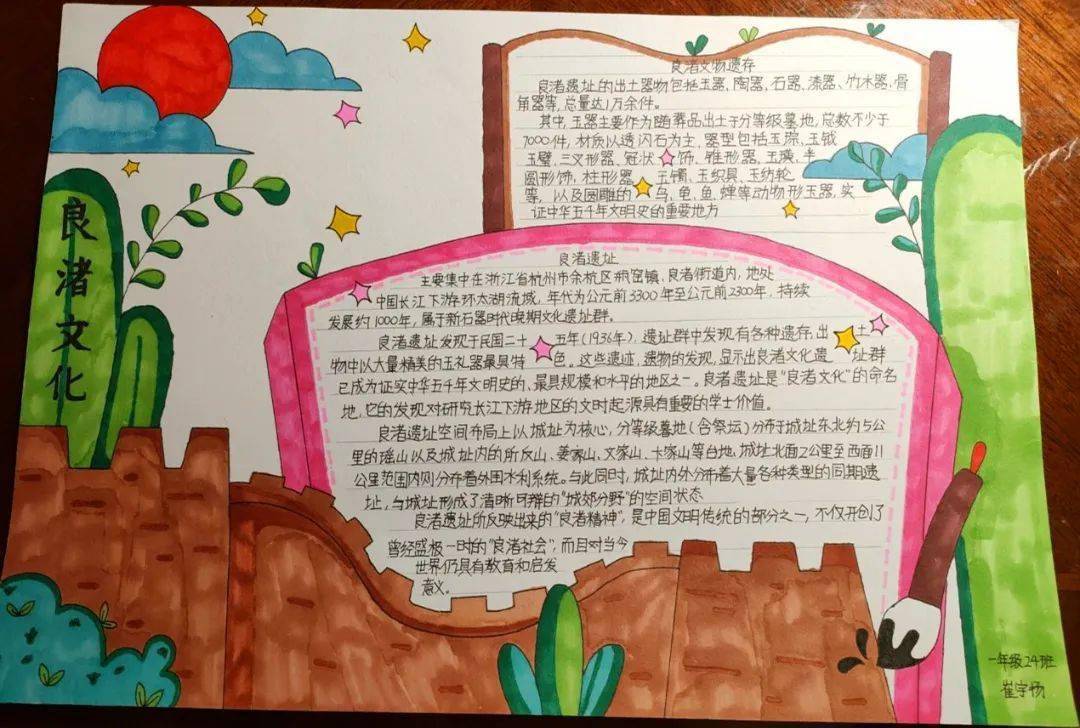 良渚文化
良渚文物遗存
良渚遗址的出土器物包括玉器、陶器、石器、漆器、竹木器、骨
角器等,总量达1万余件。
其中,玉器主要作为随葬品出土于分等级墓地,总数不少于
7000件,材质以透闪石为主,器型包括玉琮、玉钺
玉璧、三叉形器、冠状饰、锥形器、玉璜、半
圆形饰、柱形器、玉镯、玉织具、玉纺轮
等,以及圆雕的鸟、龟、鱼、蝉等动物形玉器,实
证中华五千年文明史的重要地方
良渚遗址
主要集中在浙江省杭州市余杭区瓶窑镇、良渚街道内,地处
中国长江下游环太湖流域,年代为公元前3300年至公元前2300年,持续
发展约1000年,属于新石器时代晚期文化遗址群。
良渚遗址发现于民国二十五年(1936年),遗址群中发现有各种遗存,出土
物中以大量精美的玉礼器最具特色。这些遗迹,遗物的发现,显示出良渚文化遗址群
已成为证实中华五千年文明史的、最具规模和水平的地区之一。良渚遗址是“良渚文化”的命名
地,它的发现对研究长江下游地区的文时起源具有重要的学士价值。
良渚遗址空间布局上以城址为核心,分等级墓地(含祭坛)分布于城址东北约5公
里的瑶山以及城址内的所反山、姜家山、文家山、卞家山等台地,城址北面2公里至西面11
公里范围内则分布着外围水利系统。与此同时,城址内外分布着大量各种类型的同期遗
址,与城址形成了清晰可辨的“城郊分野”的空间状态
良渚遗址所反映出来的“良渚精神”,是中国文明传统的部分之一,不仅开创了
曾经盛极一时的“良渚社会”,而且对当今
世界仍具有教育和启发
意义。
一年级24班
崔宇杨